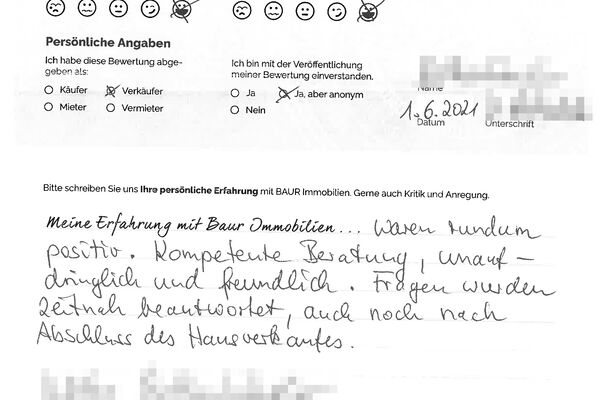 Persönliche Angaben
Ich habe diese Bewertung abge-
geben als:
Käufer Verkäufer
Mieter Vermieter
Ich bin mit der Veröffentlichung
meiner Bewertung einverstanden.
Ja Ja, aber anonym
Nein
Name
1.6.2021
Datum Unterschrift
Bitte schreiben Sie uns Ihre persönliche Erfahrung mit BAUR Immobilien. Gerne auch Kritik und Anregung.
Meine Erfahrung mit Baur Immobilien... waren rundum
positiv. Kompetente Beratung, unauf-
dringlich und freundlich. Fragen wurden
zeitnah beantwortet, auch noch nach
Abschluss des Hausverkaufes.